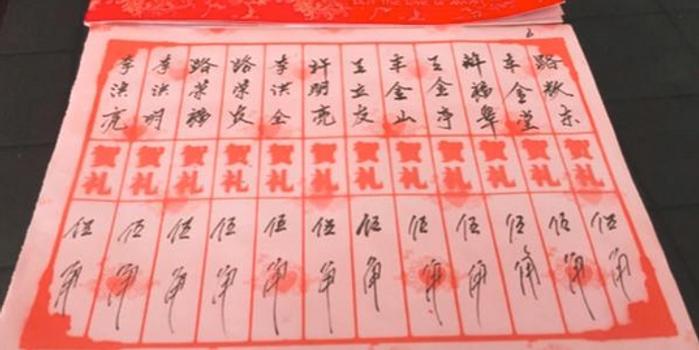 路 东 贺礼 伍角
车金堂 贺礼 伍角
福 贺礼 伍角
王金亭 贺礼 伍角
车金山 贺礼 伍角
王立友 贺礼 伍角
许明亮 贺礼 伍角
李洪全 贺礼 伍角
路荣友 贺礼 伍角
路荣福 贺礼 伍角
李洪明 贺礼 伍角
李洪亮 贺礼 伍角